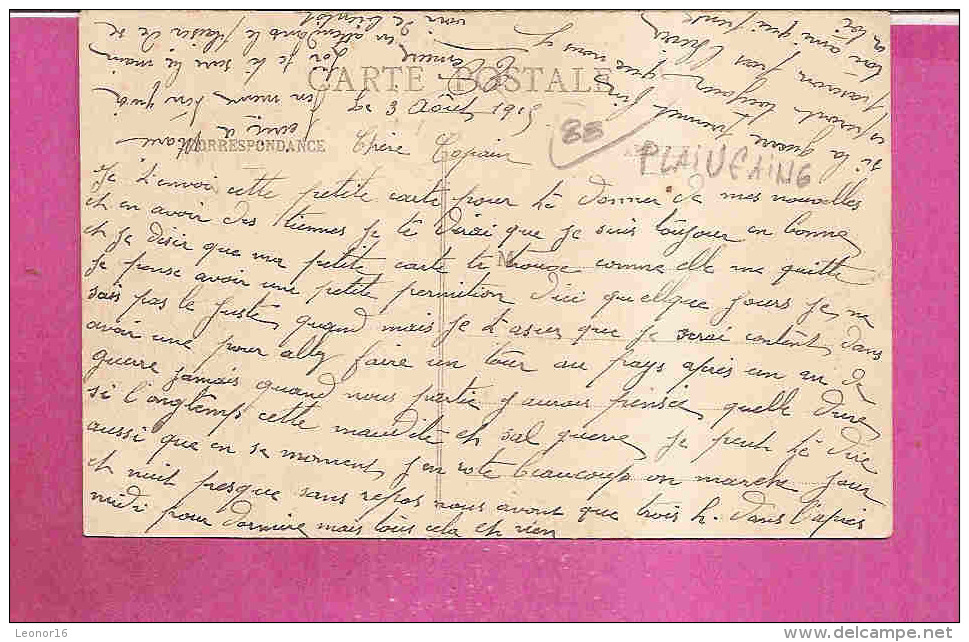 CARTE POSTALE
Le 3 Août 1915
88
PLAINFAING
CORRESPONDANCE
Chère Copain
Je t'envoi cette petite carte pour té donner de mes nouvelles
et en avoir des tiennes je té dirai que je suis toujour en bonne
et je désir que ma petite carte te trouve comme elle me quitte
je pense avoir une petite permition d'ici quellque jours je ne
sais pas le juste quand mais je t'asur que je serai contént dans
avoir une pour allez faire un tour au pays après un an de
guerre jamais quand nous partie j'aurais pensée quelle dure
si l'ongtemps cette maudite et sal guerre je peut té dire
aussi que en se moment j'en rote beaucoup on marche jour
et nuit presque sans repos nous avont que trois h. dans l'après
midi pour dormire mais tous cela et rien
si la guerre
toujour
ami qui
en attendans le plaisir de te
voir de bientôt
je té sere la main
Leonor16
www.delcampe.net